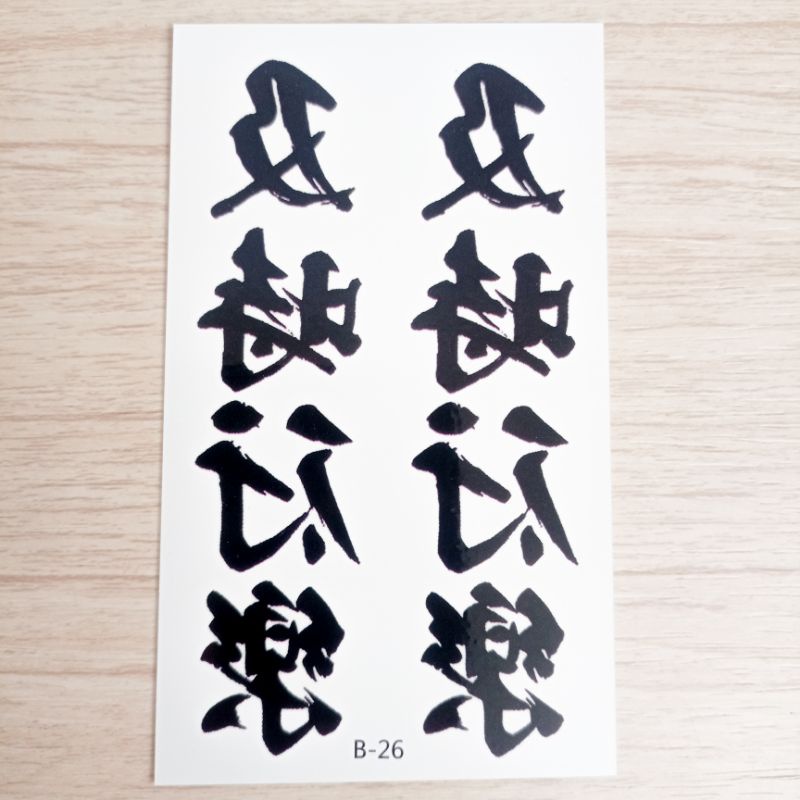 及時行樂
及時行樂
B-26